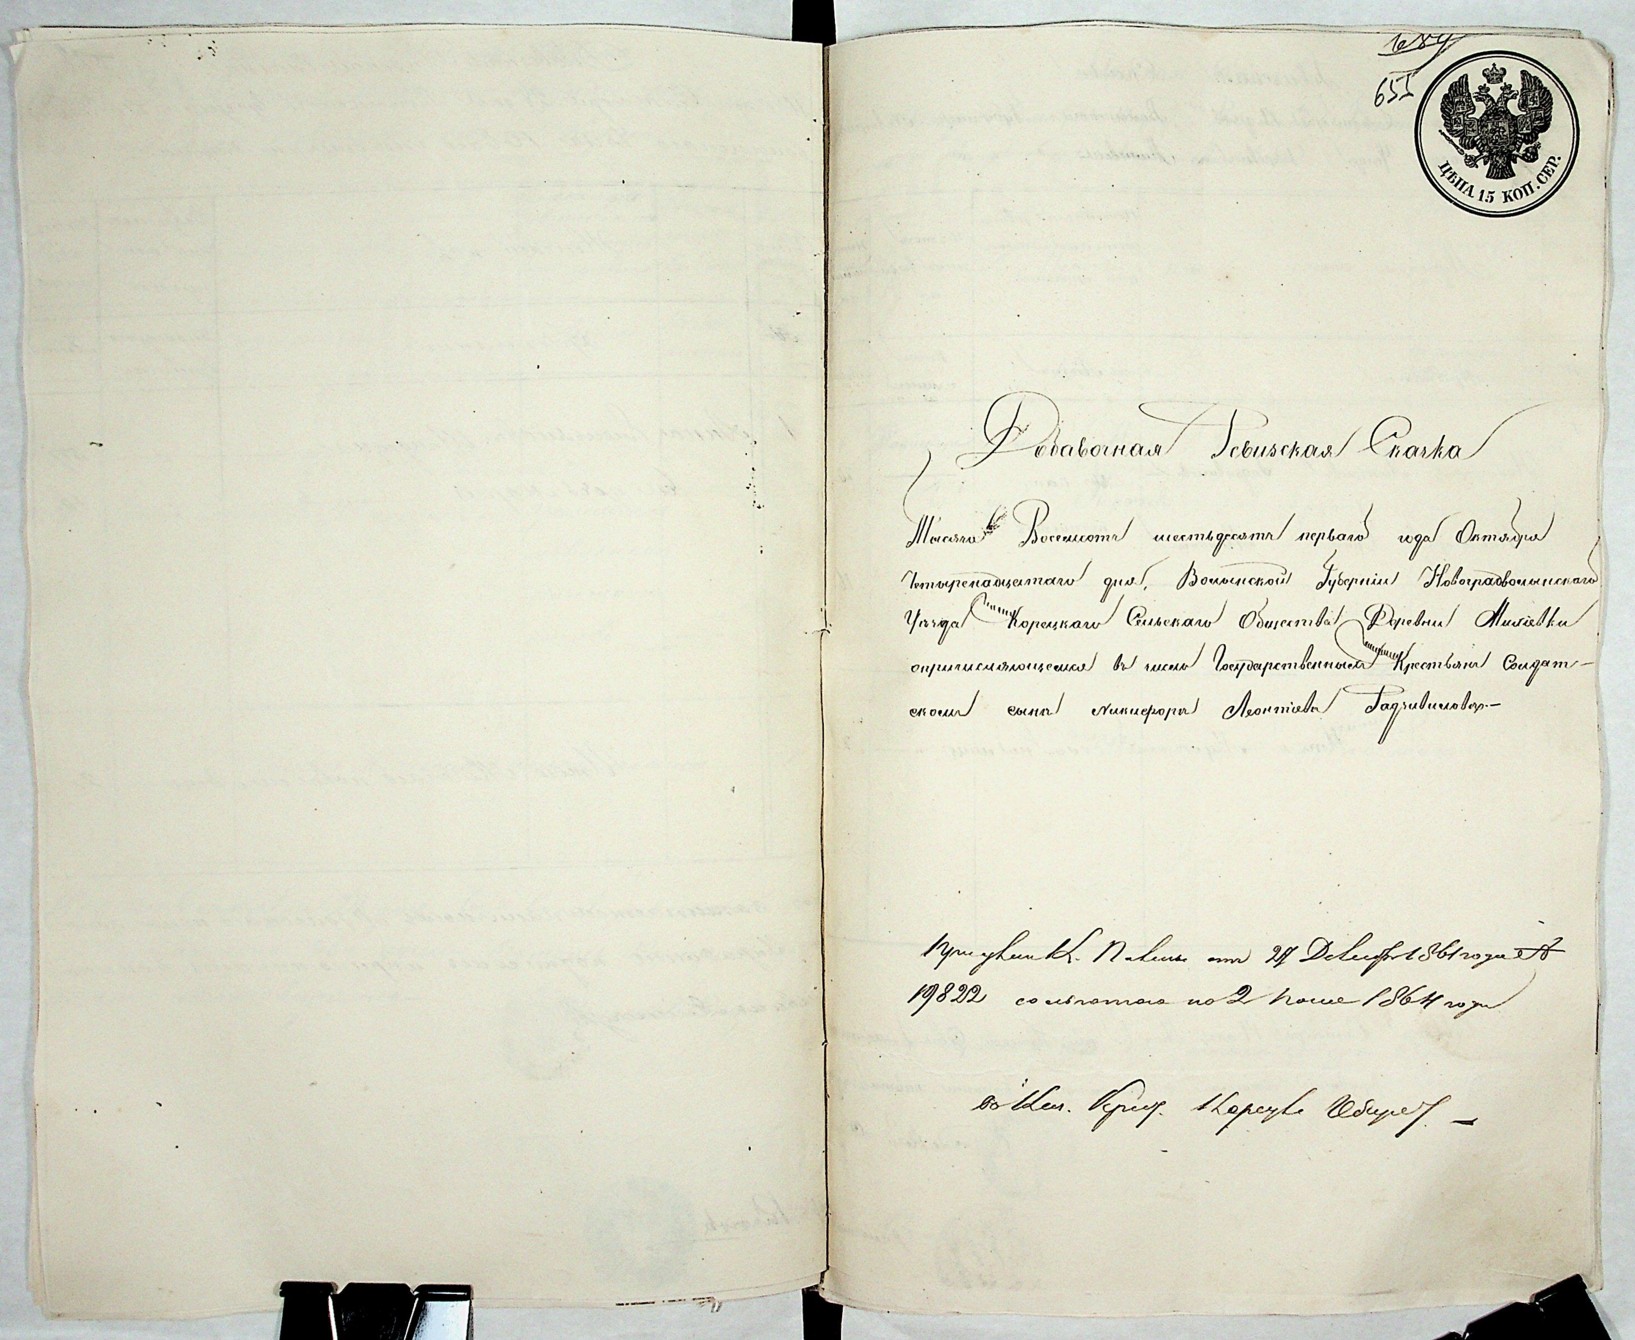 651
ЦѢНА 15 КОП. СЕР.
Добавочная Ревизская Сказка
Тысяча Восемсотъ шестьдесятъ перваго года Октября
Четыренадцатаго дня, Волынской Губерніи Новоградволынскаго
Уѣзда Корецкаго Сельскаго Общества Деревни
опричисляющемся въ число Государственныхъ Крестьянъ Солдат-
скомъ сынѣ Никифорѣ Леонтіевѣ Радзивиловѣ.—
К. П. отъ 29 Декабр 1861 года №
19822 со льготою по 2 пол 1864 года